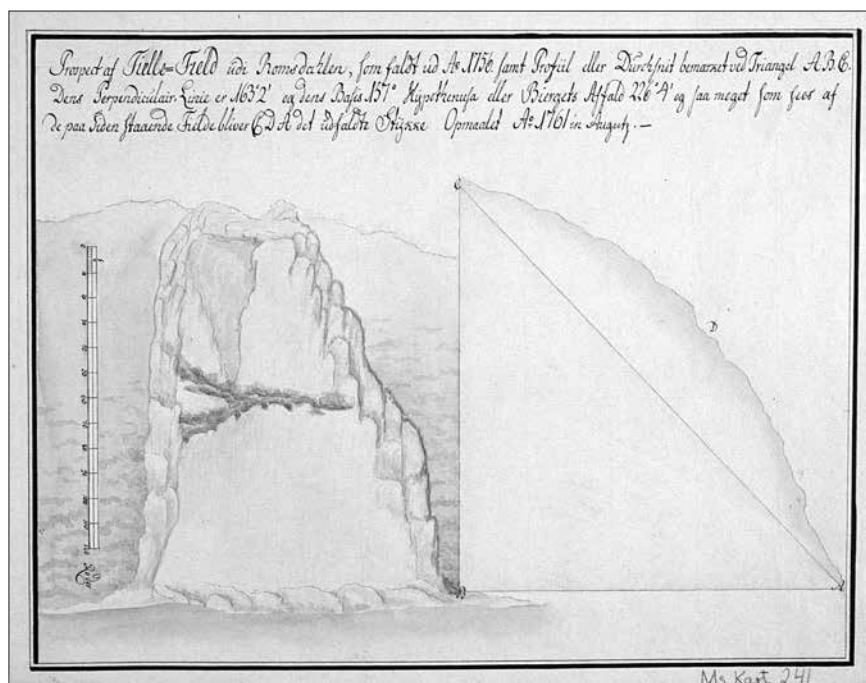 Prospect af Tielle=Field udi Romsdahlen, som faldt ud Aº 1756. samt Profiil eller Durchsnit bemærket ved Triangel A B C.
Dens Perpendiculair-Linie er 163°2' og dens Basis 157° Hypothenusa eller Biergets Affald 226°4' og saa meget som sees af
de paa Siden staaende Fielde bliver C D A det udfaldte Stÿkke Opmaalet Aº 1761 in Augustj. —
C
D
B
A
Ms Kart 241